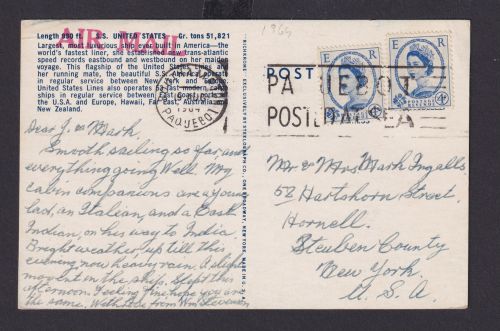 1964
Length 990 ft. S.S. UNITED STATES Gr. tons 51,821
AIR MAIL
Largest and most luxurious ship ever built in America—the
world's fastest liner, she established
trans-atlantic
speed records eastbound and westbound on her maiden
voyage. This flagship of the United States Lines and
her running mate, the beautiful S.S. America, operate
in regular service between New York and Europe.
United States Lines also operates 50 fast modern cargo
ships in regular service between
ports of
the U.S.A. and Europe, Hawaii, Far East, Australia
New Zealand.
1964
PAQUEBOT
POST
E R
E R
POSTAGE REVENUE
PAQUEBOT
POSTED AT SEA
Dear J. & Mark,
Smooth sailing so far, and
everything going Well. My
cabin companions are a young
lad, an Italian, and a East
Indian, on his way to India
Bright weather up till this
evening, now heavy rain. A slight
movement in the ship. Slept this
afternoon. Feeling fine, hope you are
the same. With love from Wm Stevenson
Mr & Mrs Mark Ingalls
52 Hartshorn Street,
Hornell.
Steuben County
New York.
U.S.A.